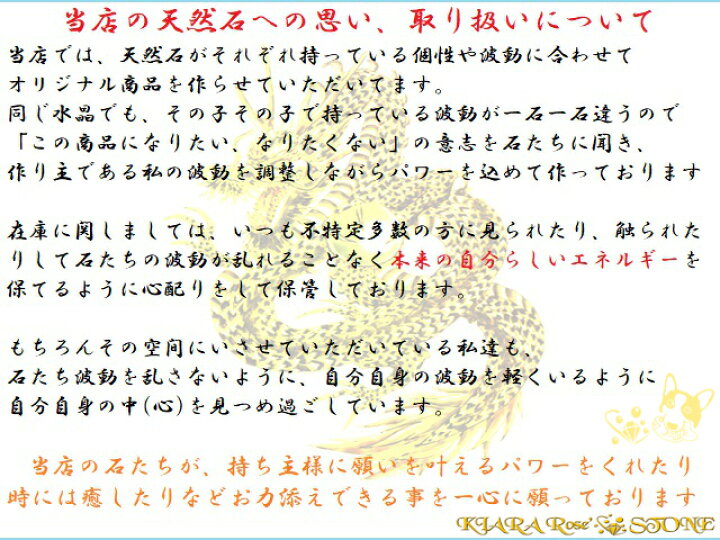 当店の天然石への思い、取り扱いについて
当店では、天然石がそれぞれ持っている個性や波動に合わせて
オリジナル商品を作らせていただいてます。
同じ水晶でも、その子その子で持っている波動が一石一石違うので
「この商品になりたい、なりたくない」の意志を石たちに聞き、
作り主である私の波動を調整しながらパワーを込めて作っております
在庫に関しましては、いつも不特定多数の方に見られたり、触られた
りして石たちの波動が乱れることなく本来の自分らしいエネルギーを
保てるように心配りをして保管しております。
もちろんその空間にいさせていただいている私達も、
石たち波動を乱さないように、自分自身の波動を軽くいるように
自分自身の中(心)を見つめ過ごしています。
当店の石たちが、持ち主様に願いを叶えるパワーをくれたり
時には癒したりなどお力添えできる事を一心に願っております
KIARA Rose' STONE